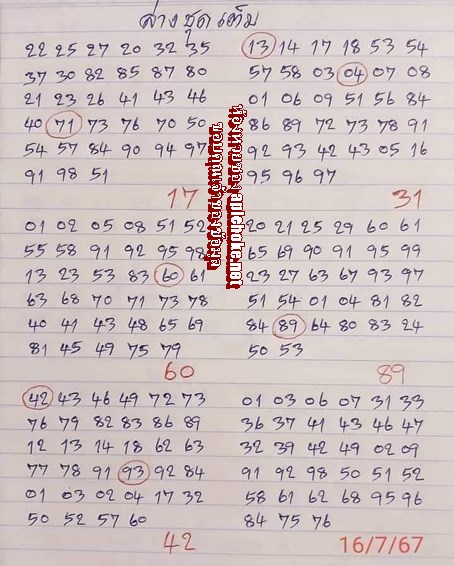 ล่าง ชุด เต็ม
22 25 27 20 32 35
37 30 82 85 87 80
21 23 26 41 43 46
40 71 73 76 70 50
54 57 84 90 94 97
91 98 51
17
13 14 17 18 53 54
57 58 03 04 07 08
01 06 09 51 56 84
86 89 72 73 78 91
92 93 42 43 05 16
95 96 97
31
01 02 05 08 51 52
55 58 91 92 95 98
13 23 53 83 60 61
63 68 70 71 73 78
40 41 43 48 65 69
81 45 49 75 79
60
20 21 25 29 60 61
65 69 90 91 95 99
23 27 63 67 93 97
51 54 01 04 81 82
84 89 64 80 83 24
50 53
89
42 43 46 49 72 73
76 79 82 83 86 89
12 13 14 18 62 63
77 78 91 93 92 84
01 03 02 04 17 32
50 52 57 60
42
01 03 06 07 31 33
36 37 41 43 46 47
32 39 42 49 02 09
91 92 98 50 51 52
58 61 62 68 95 96
84 75 76
16/7/67